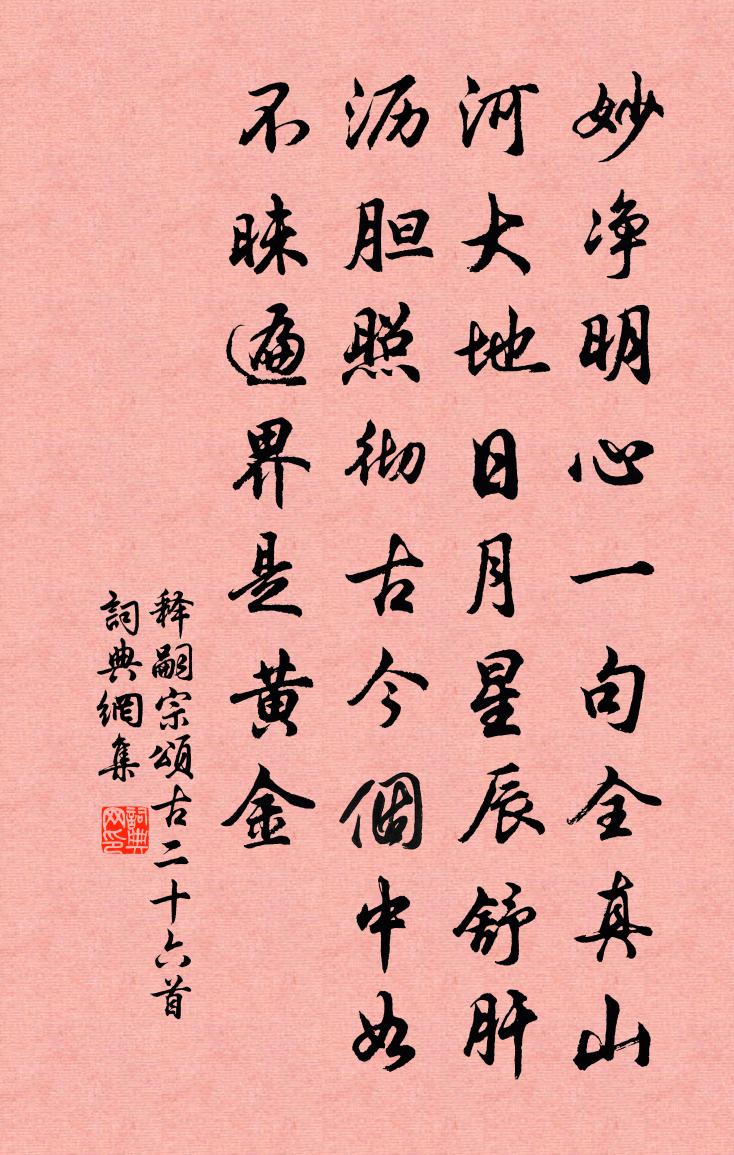 妙净明心一句全真山
河大地日月星辰舒肝
沥胆照彻古今個中如
不昧遍界是黄金
释嗣宗頌古二十六首
詞典網集
詞典网印